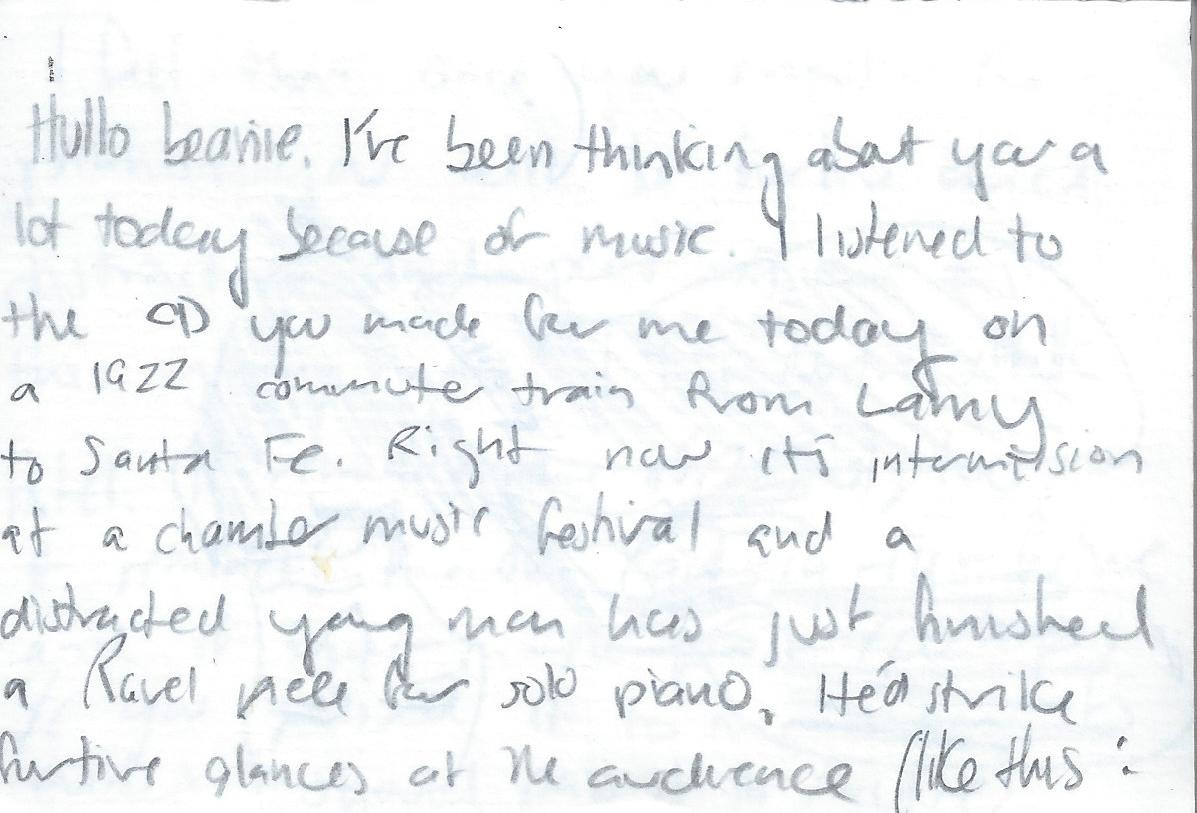 Hullo beanie. I've been thinking about you a
lot today because of music. I listened to
the CD you made for me today on
a 1922 commuter train from Lamy
to Santa Fe. Right now it's intermission
at a chamber music festival and a
distracted young man has just finished
a Ravel piece for solo piano. He'd strike
furtive glances at the audience (like this :